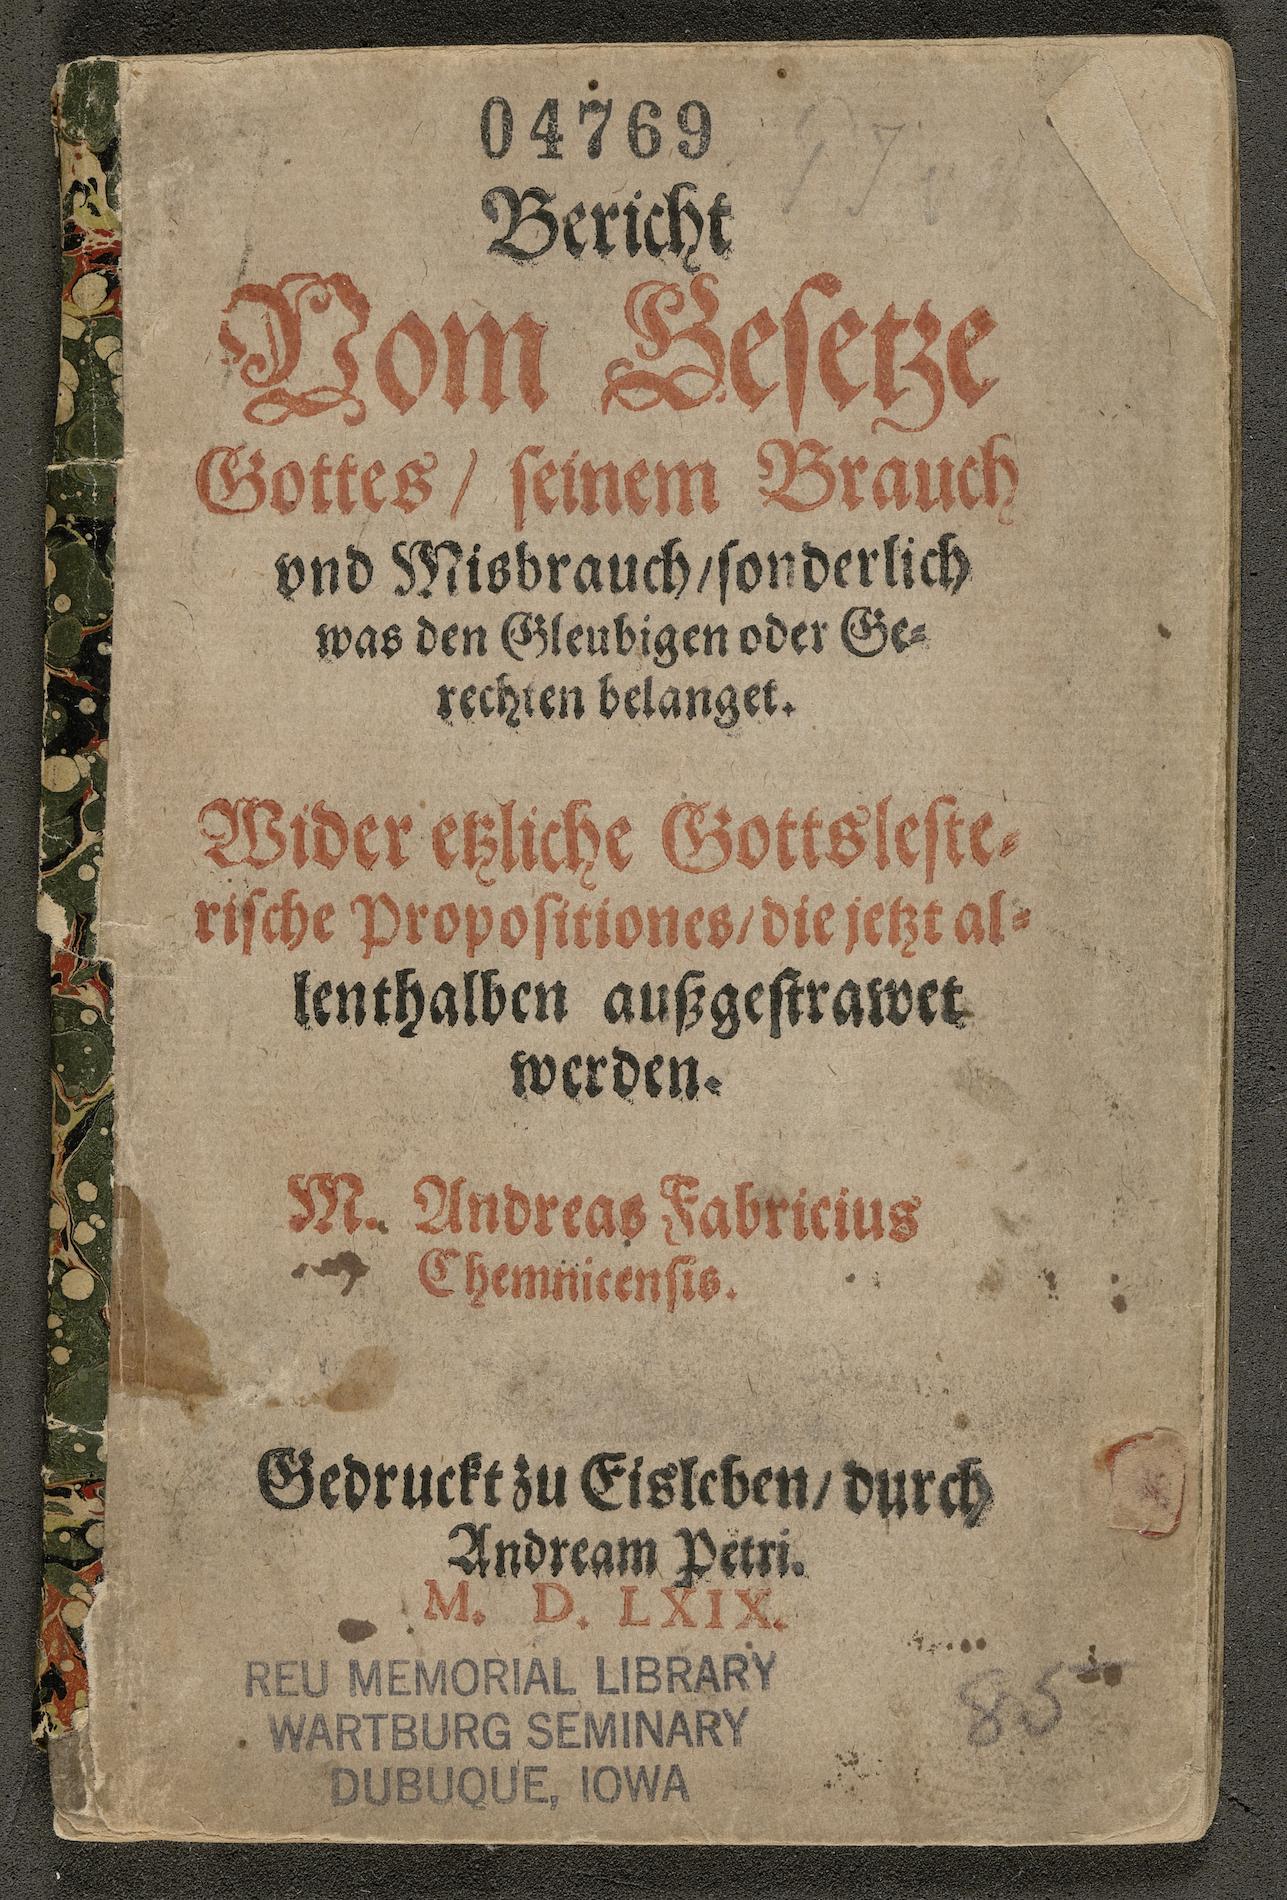 04769
Bericht
Vom Gesetze
Gottes / seinem Brauch
vnd Misbrauch / sonderlich
was den Gleubigen oder Ge-
rechten belanget.
Wider etzliche Gottsleste-
rische Propositiones / die jetzt al-
lenthalben außgestrawet
werden.
M. Andreas Fabricius
Chemnicensis.
Gedruckt zu Eisleben / durch
Andream Petri.
M. D. LXIX.
REU MEMORIAL LIBRARY
WARTBURG SEMINARY
DUBUQUE, IOWA
85